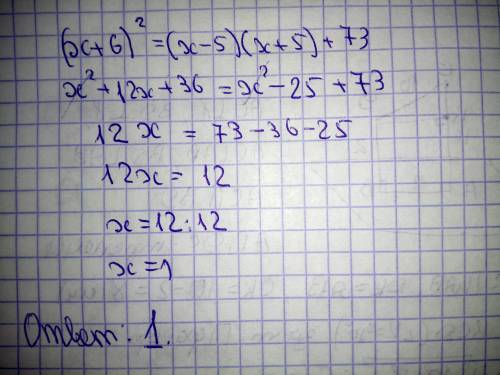 (x+6)² = (x-5)(x+5)+73
x²+12x+36 = x²-25+73
12x = 73-36-25
12x = 12
x=12:12
x=1
Ответ: 1.